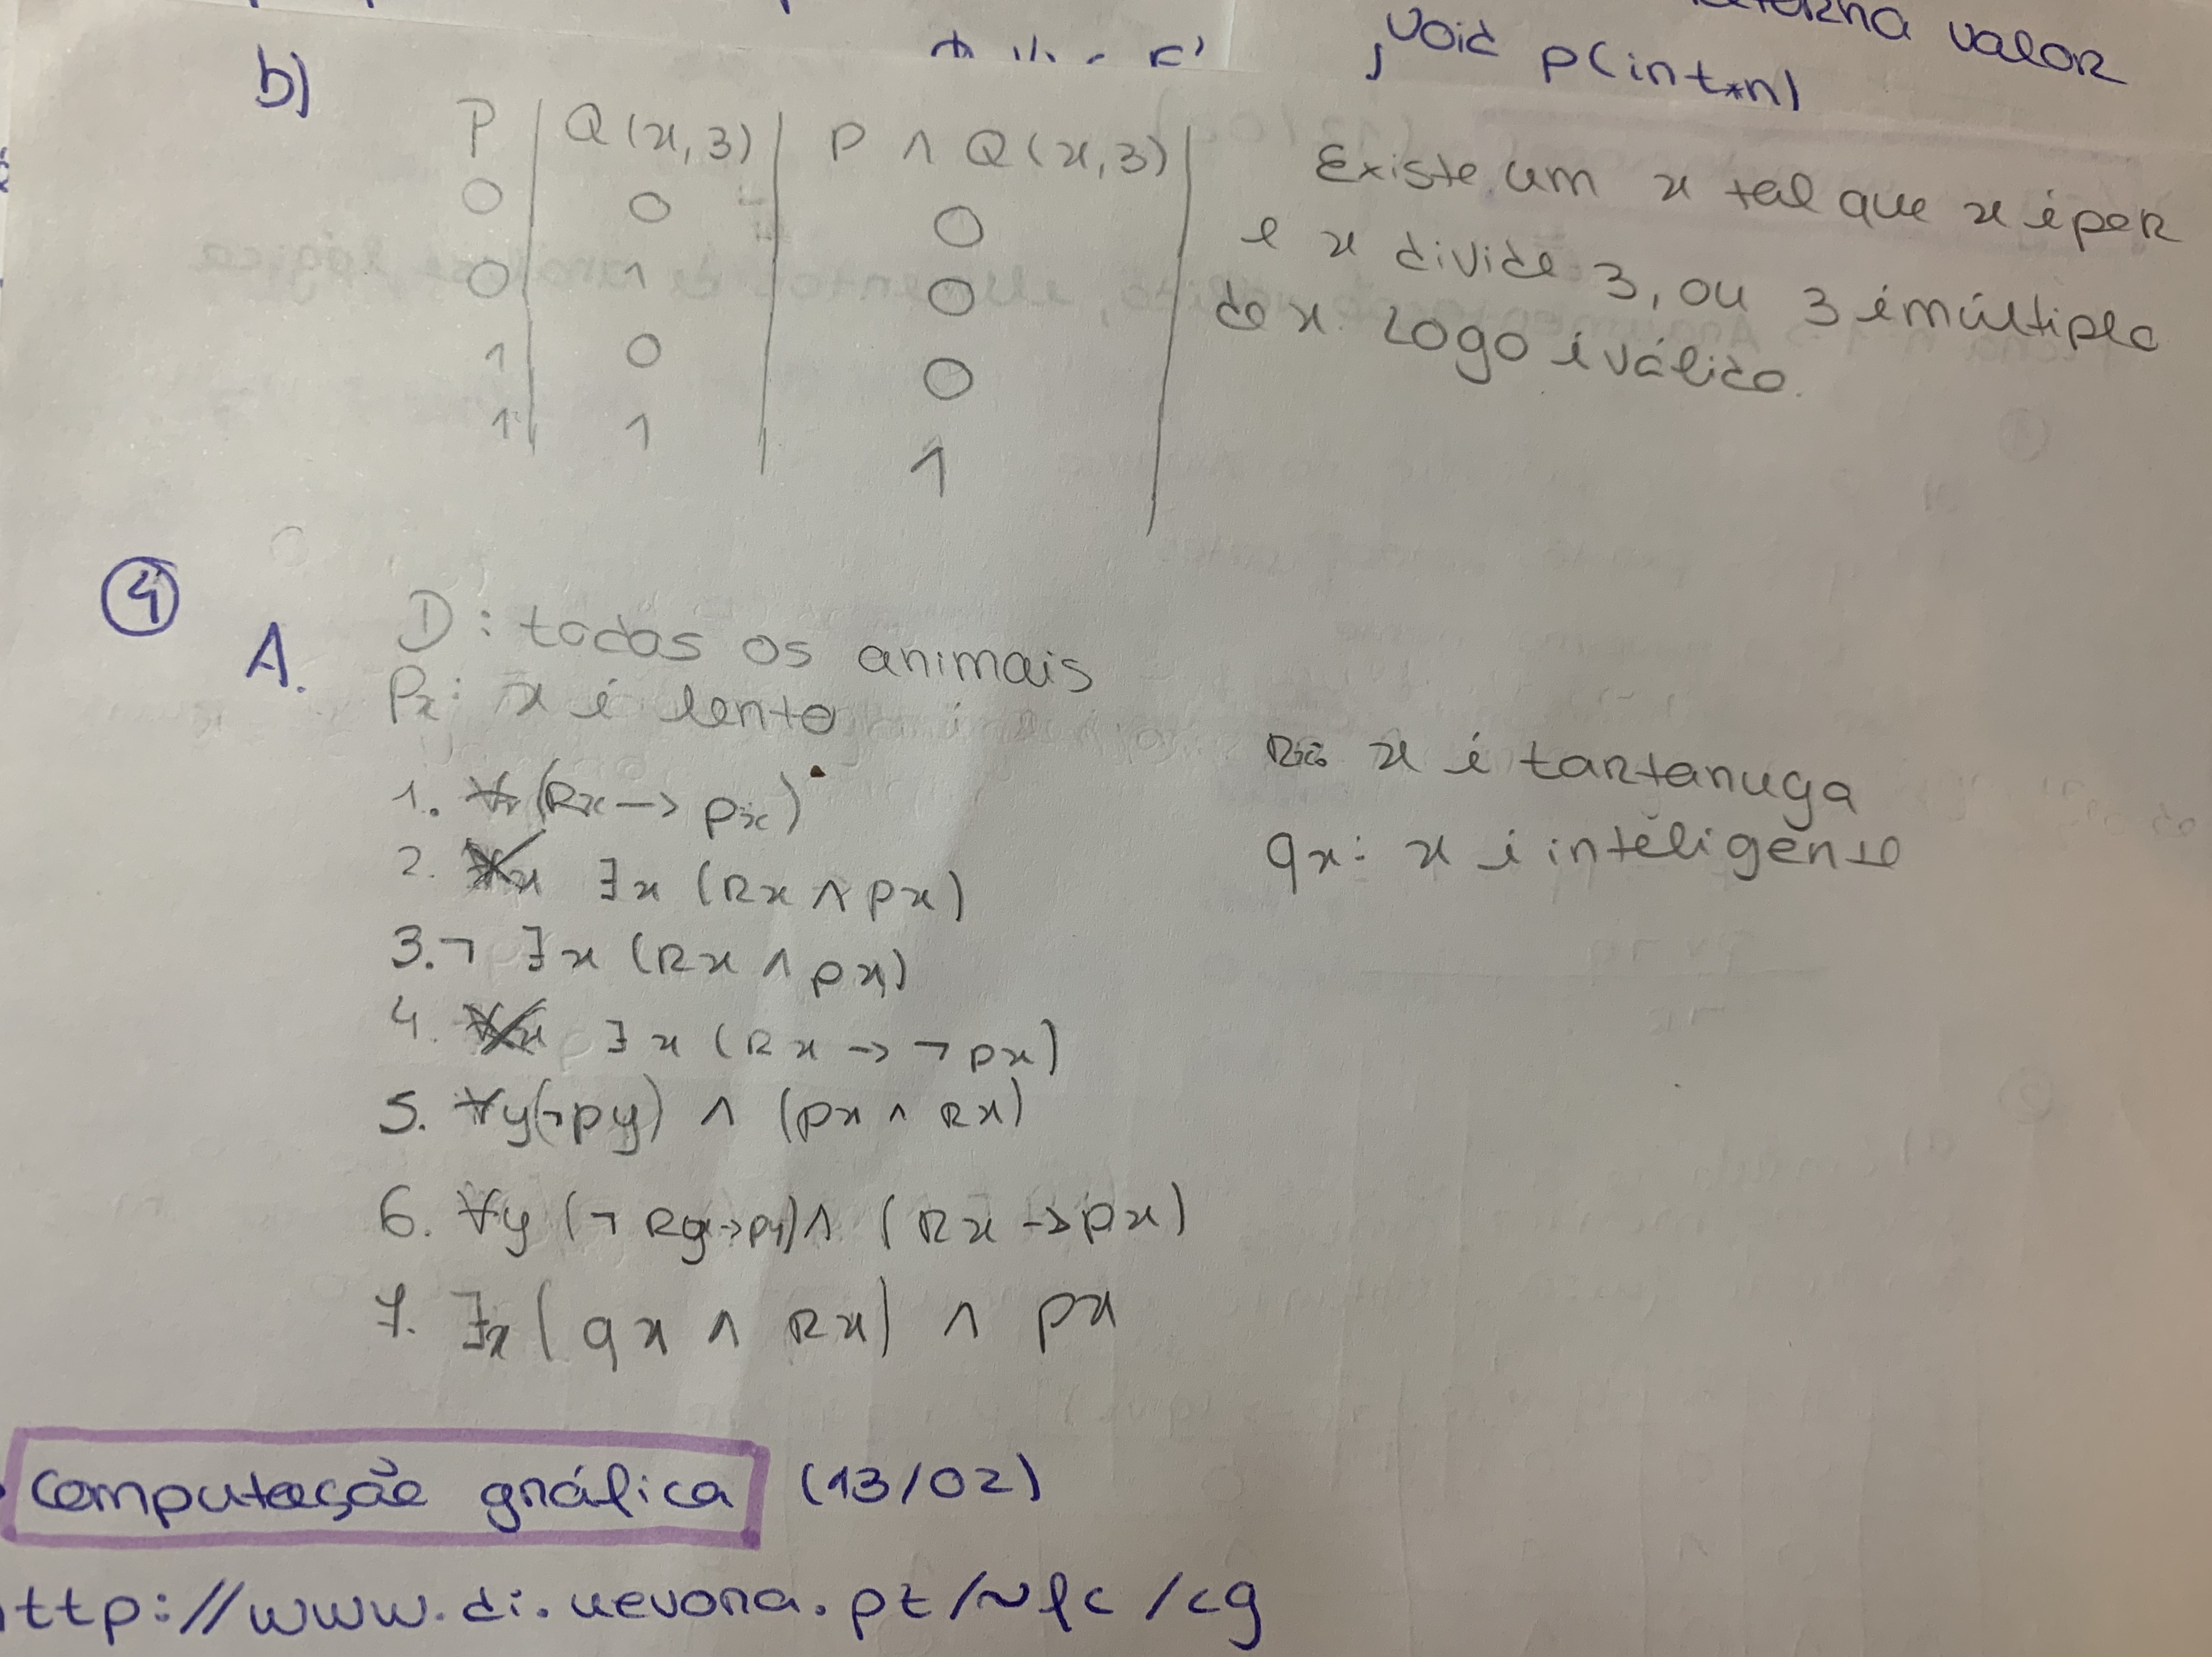 valor
void p(int*n)
b)
P | Q(x,3) | P ∧ Q(x,3) |
0 | 0 | 0
0 | 1 | 0
1 | 0 | 0
1 | 1 | 1
Existe um x tal que x é par
e x divide 3, ou 3 é múltiplo
de x. Logo é válido.
4
A. D: todos os animais
Px: x é lento
Rx: x é tartaruga
qx: x é inteligente
1. ∀x (Rx → px)
2. ∃x (Rx ∧ px)
3. ¬ ∃x (Rx ∧ px)
4. ∃x (Rx → ¬px)
5. ∀y(¬py) ∧ (px ∧ Rx)
6. ∀y (¬Ry→py) ∧ (Rx → px)
7. ∃x (qx ∧ Rx) ∧ px
Computação gráfica (13/02)
ttp://www.di.uevora.pt/~lfc/cg